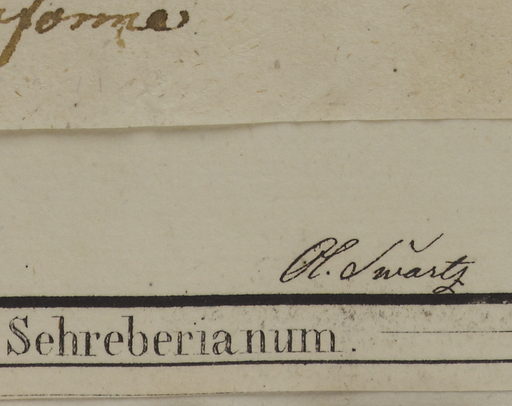 Ol. Swartz
Schreberianum.